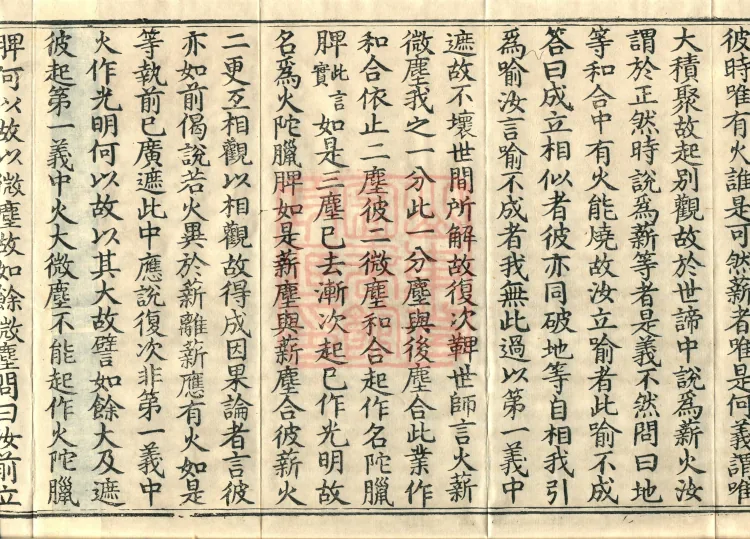 彼時唯有火誰是可然薪者唯是何義謂唯
大積聚故起別觀故於世諦中說為薪火汝
謂於正然時說為薪等者是義不然問曰地
等和合中有火能燒故汝立喻者此喻不成
答曰成立相似者彼亦同破地等自相我引
為喻汝言喻不成者我無此過以第一義中
遮故不壞世間所解故復次鞞世師言火薪
微塵我之一分此一分塵與後塵合此業作
和合依止二塵彼二微塵和合起作名陀臘
脾此言實如是三塵已去漸次起已作光明故
名為火陀臘脾如是薪塵與薪塵合彼薪火
二更互相觀以相觀故得成因果論者言彼
亦如前偈說若火異於薪離薪應有火如是
等執前已廣遮此中應說復次非第一義中
火作光明何以故以其大故譬如餘大及遮
彼起第一義中火大微塵不能起作火陀臘
脾何以故以微塵故如餘微塵問曰汝前立